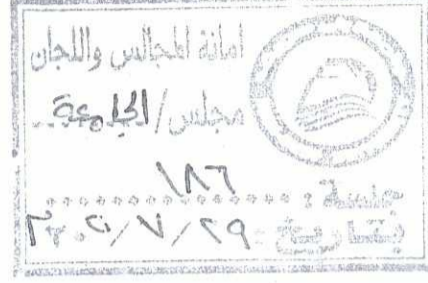 امانة المجالس واللجان
مجلس/الجامعة
جلسة : ١٨٦
بتاريخ : ٢٩/٧/